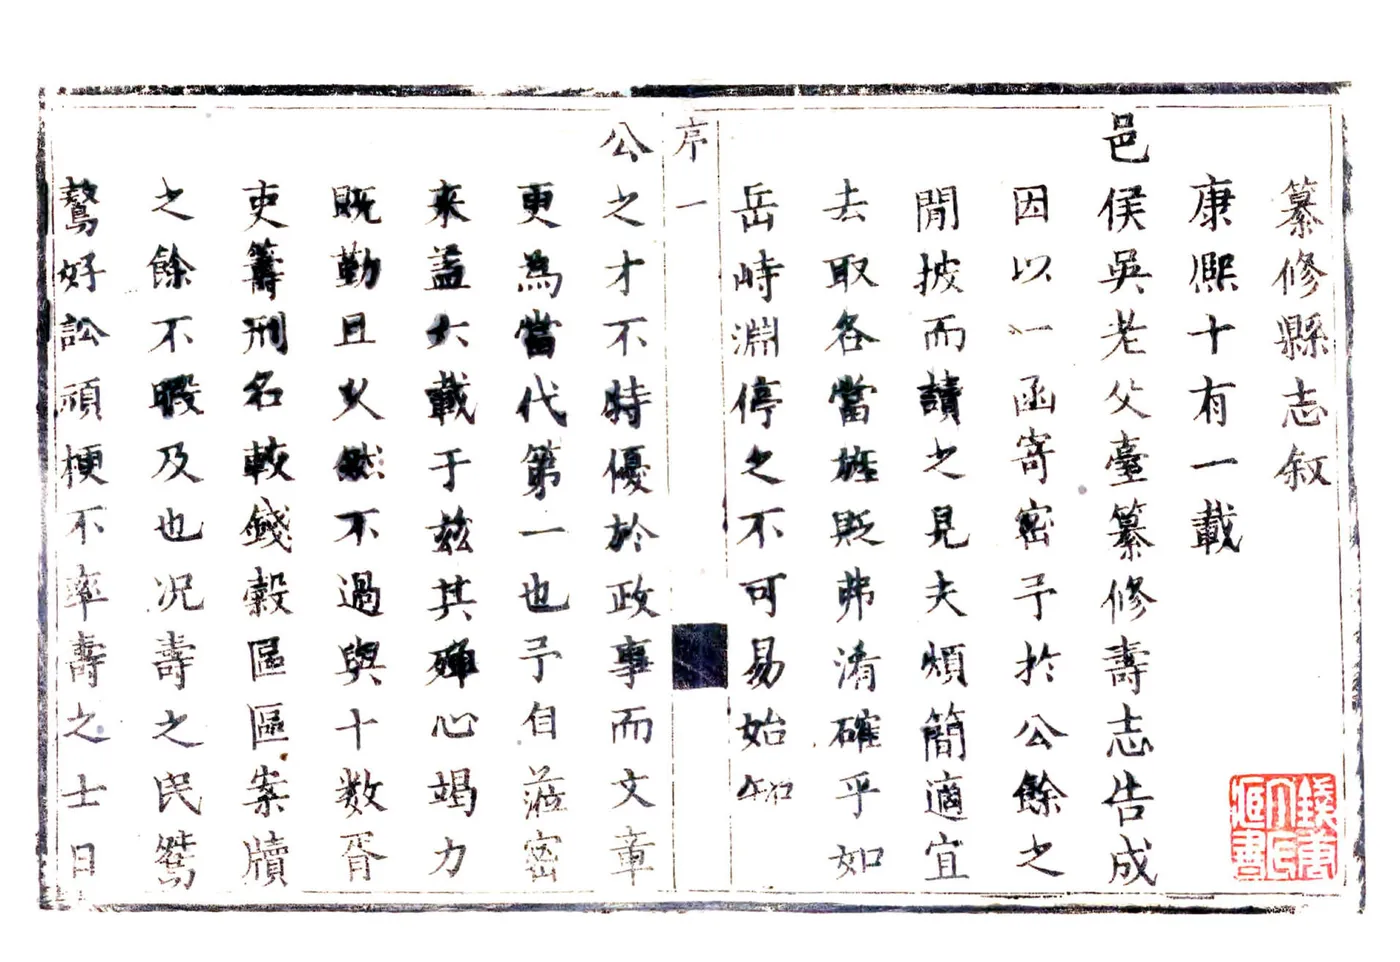 纂修縣志叙
康熙十有一載
邑侯吳老父臺纂修壽志告成
因以一函寄密予於公餘之
閒披而讀之見夫煩簡適宜
去取各當旌貶弗淆確乎如
岳峙淵停之不可易始知
序一
公之才不特優於政事而文章
更為當代第一也予自蒞密
来盖六載于兹其殫心竭力
既勤且久然不過與十数胥
吏籌刑名較錢穀區區案牘
之餘不暇及也况壽之民鴑
驁好訟頑梗不率壽之士日